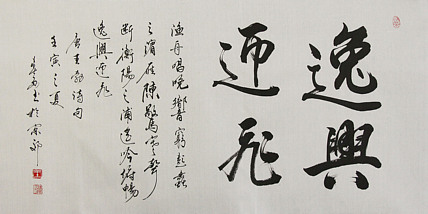 逸興
遄飛
漁舟唱晚響窮彭蠡
之濱雁陣驚寒聲
斷衡陽之浦遥吟俯暢
逸興遄飛
唐王勃詩句
壬寅之夏
於京郊